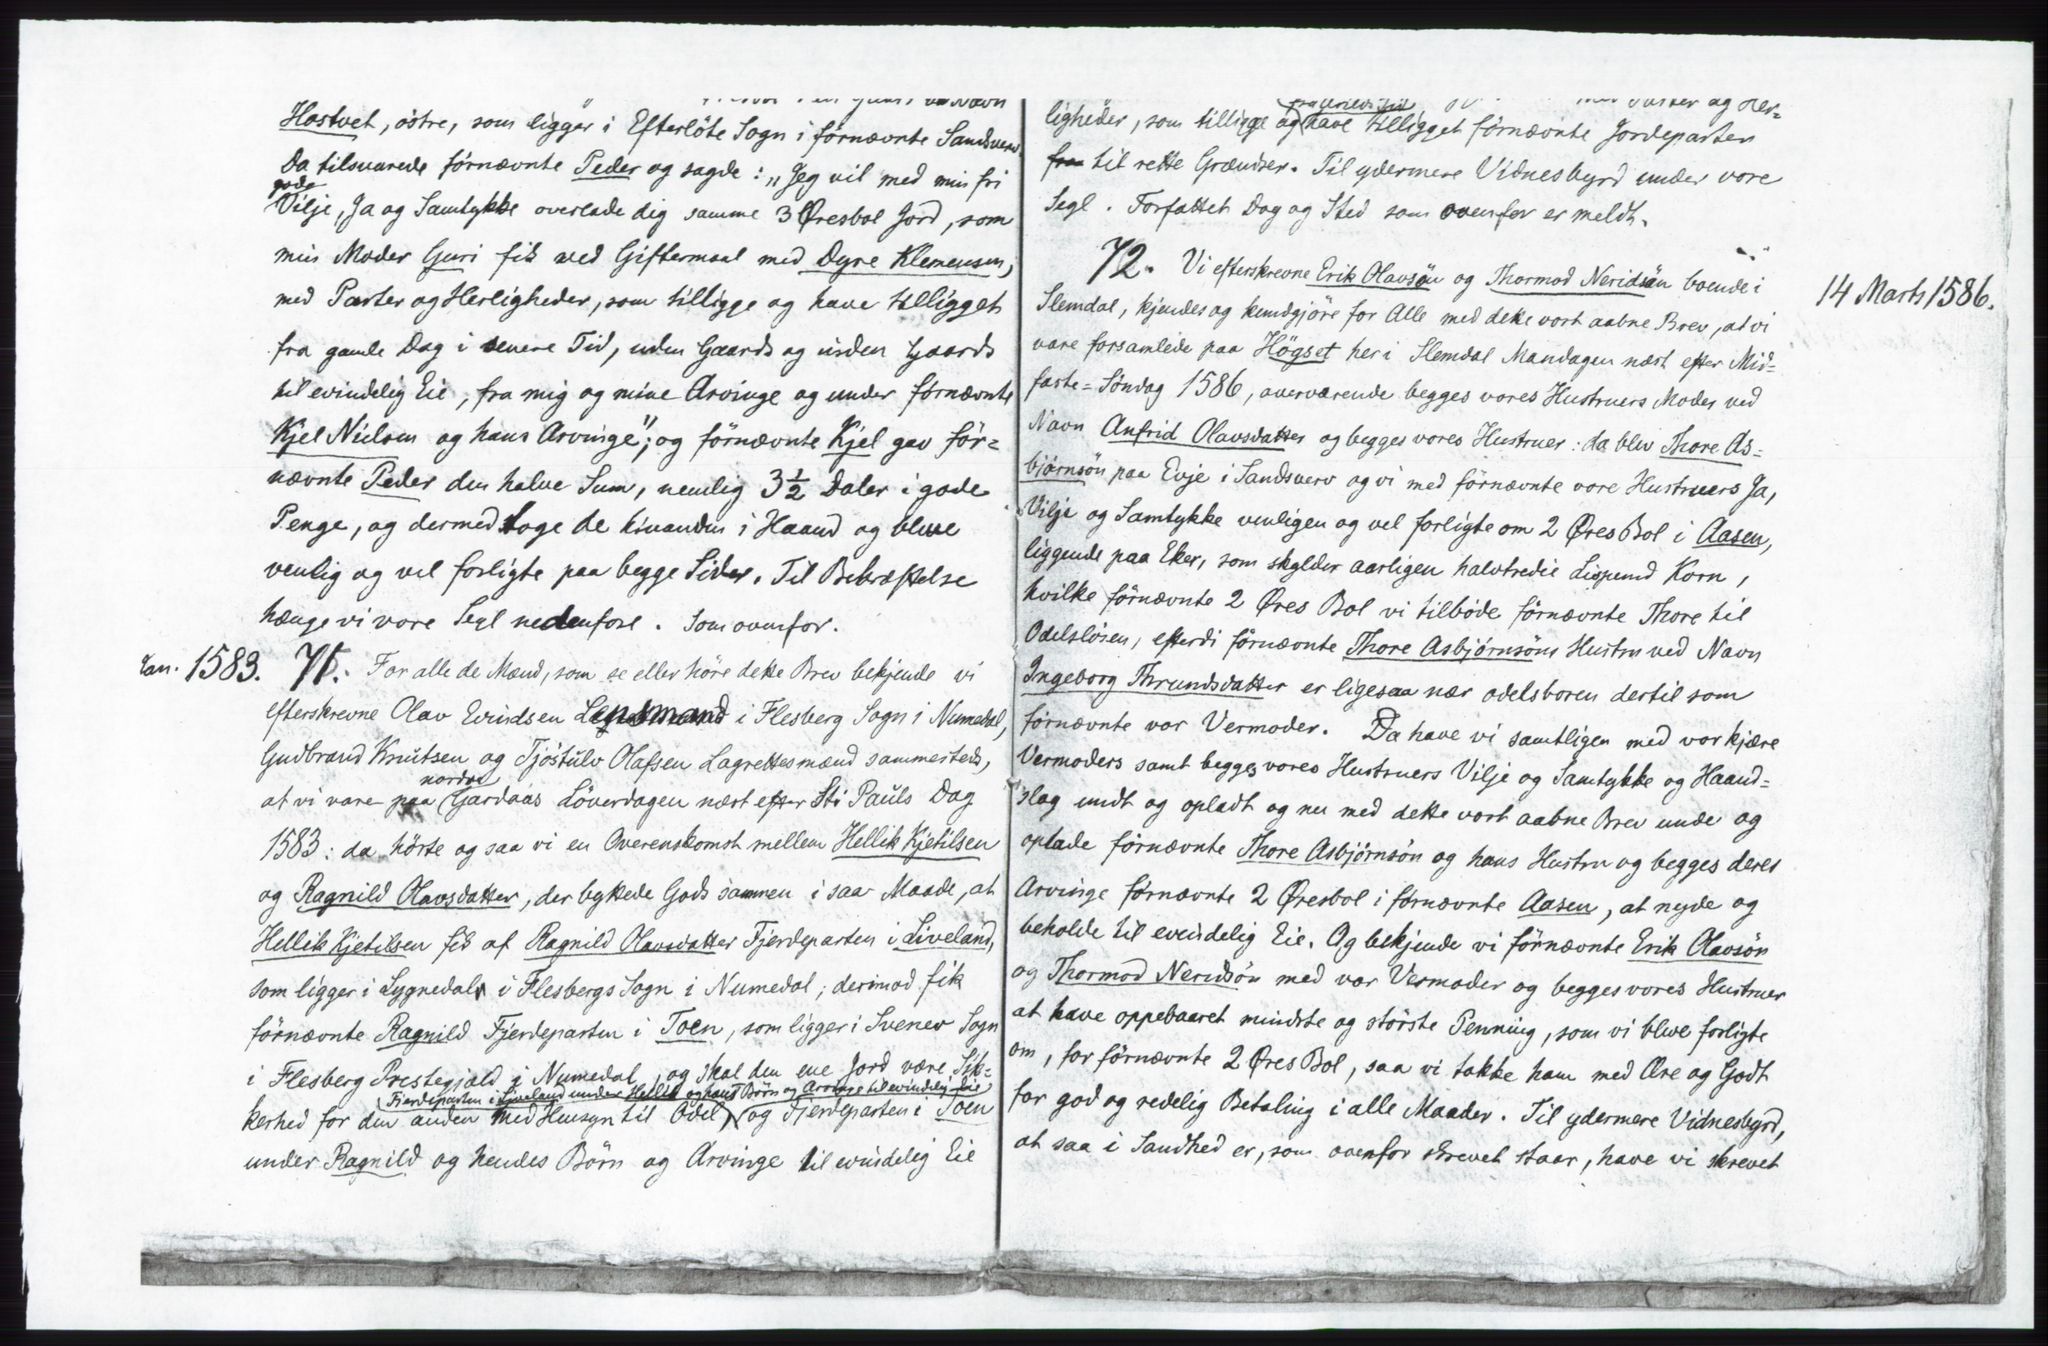 Hostvet, östre, som ligger i Efterlöte Sogn i förnævnte Sandsverv
Da tilsvarede förnævnte Peder og sagde: "Jeg vil med min fri
gode
Vilje, Ja og Samtykke overlade dig samme 3 Øresbol Jord, som
min Moder Guri fik ved Giftermaal med Dyre Klemensen,
med Parter og Herligheder, som tilligge og have tilligget
fra gamle Dag i senere Tid, uden Gaards og inden Gaards
til evindelig Eie, fra mig og mine Arvinge og under förnævnte
Kjel Nielsen og hans Arvinge"; og förnævnte Kjel gav för=
nævnte Peder den halve Sum, nemlig 3½ Daler i gode
Penge, og dermed toge de hinanden i Haand og bleve
venlig og vel forligte paa begge Sider. Til Bekræftelse
hænge vi vore Segl nedenfore. Som ovenfor.
Jan. 1583. 71. For alle de Mænd, som se eller höre dette Brev bekjende vi
efterskrevne Olav Evindsen Lensmand i Flesberg Sogn i Numedal,
Gudbrand Knutsen og Tjöstulv Olafsen Lagrettesmænd sammesteds,
nordre
at vi vare paa Gardaas Löverdagen næst efter Sti Pauls Dag
1583: da hörte og saa vi en Overenskomst mellem Hellik Kjetilsen
og Ragnild Olavsdatter, der byttede Gods sammen i saa Maade, at
Hellik Kjetilsen fik af Ragnild Olavsdatter Fjerdeparten i Liveland,
som ligger i Lygnedal i Flesbergs Sogn i Numedal; derimod fik
förnævnte Ragnild Fjerdeparten i Toen, som ligger i Svenev Sogn
i Flesberg Prestegjeld i Numedal, og skal den ene Jord være Sik=
Fjerdeparten i Liveland under Hellik og hans Börn og Arvinge til evindelig Eie
kerhed for den anden med Hensyn til Odel, og Fjerdeparten i Toen
under Ragnild og hendes Börn og Arvinge til evindelig Eie
ligheder, som tilligge og have tilligget förnævnte Jordeparter
fra til rette Grændser. Til ydermere Vidnesbyrd under vore
Segl. Forfattet Dag og Sted som ovenfor er meldt.
72. Vi efterskrevne Erik Olavsön og Thormod Neridsön boende i
14 Marts 1586.
Slemdal, kjendes og kundgjöre for Alle med dette vort aabne Brev, at vi
vare forsamlede paa Högset her i Slemdal Mandagen næst efter Mid=
faste=Söndag 1586, overværende begges vores Hustruers Moder ved
Navn Anfrid Olavsdatter og begges vores Hustruer: da blev Thore As=
björnsön paa Evje i Sandsverv og vi med förnævnte vore Hustruers Ja,
Vilje og Samtykke venligen og vel forligte om 2 Øres Bol i Aasen,
liggende paa Eker, som skylder aarligen halvtredie Lispund Korn,
hvilke förnævnte 2 Øres Bol vi tilböde förnævnte Thore til
Odelslösen, efterdi förnævnte Thore Asbjörnsöns Hustru ved Navn
Ingeborg Thrundsdatter er ligesaa nær odelsboren dertil som
förnævnte vor Vermoder. Da have vi samtligen med vor kjære
Vermoders samt begges vores Hustruers Vilje og Samtykke og Haand=
slag undt og opladt og nu med dette vort aabne Brev unde og
oplade förnævnte Thore Asbjörnsön og hans Hustru og begges deres
Arvinge förnævnte 2 Øresbol i förnævnte Aasen, at nyde og
beholde til evindelig Eie. Og bekjende vi förnævnte Erik Olavsön
og Thormod Neridsön med vor Vermoder og begges vores Hustruer
at have oppebaaret mindste og störste Penning, som vi bleve forligte
om, for förnævnte 2 Øres Bol, saa vi takke ham med Ære og Godt
for god og redelig Betaling i alle Maader. Til ydermere Vidnesbyrd,
at saa i Sandhed er, som ovenfor skrevet staar, have vi skrevet